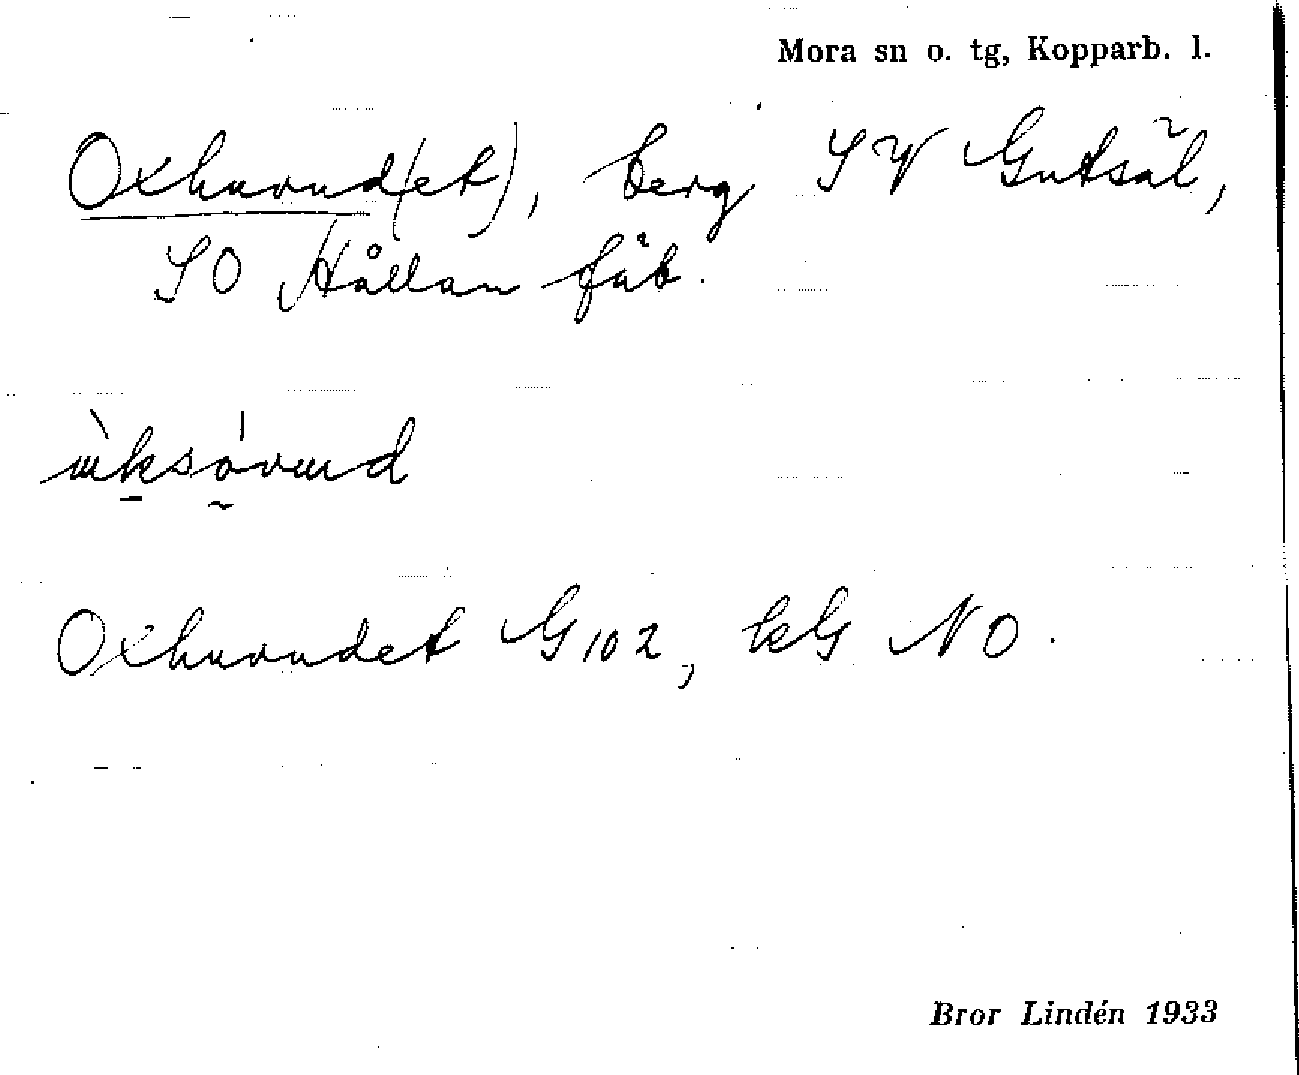 Mora sn o. tg, Kopparb. l.
Oxhuvud(et), berg SV Gutsäl,
SO Hållan fäb.
Oxhuvudet G102, kG NO.
Bror Lindén 1933